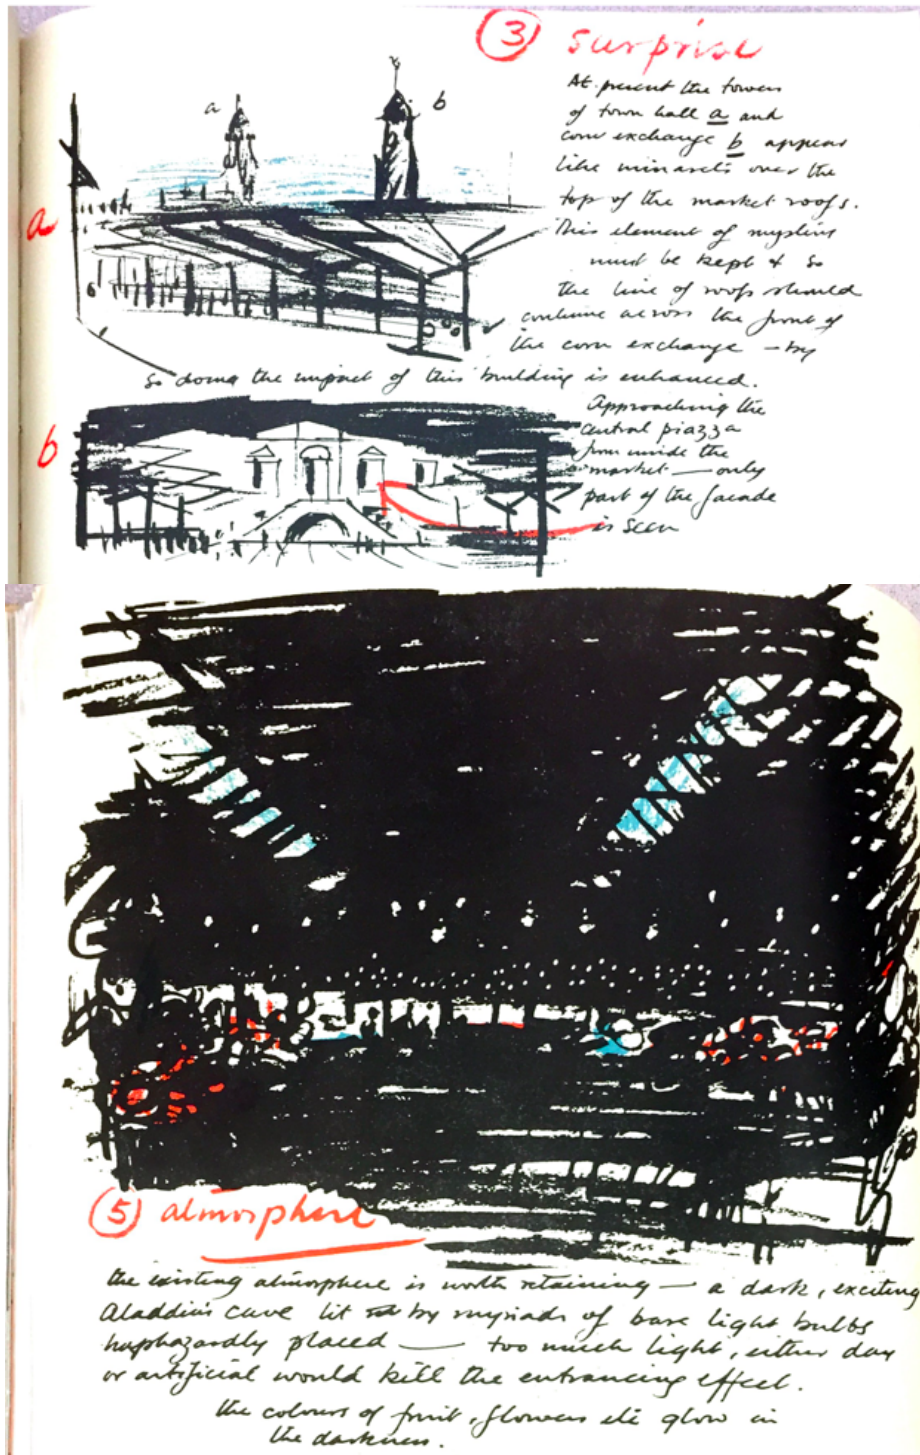 3 surprise
At present the towers
a
b
of town hall a and
corn exchange b appear
like minarets over the
top of the market roofs.
a
This element of mystery
must be kept & so
the line of roofs should
continue across the front of
the corn exchange — by
so doing the impact of this building is enhanced.
b
Approaching the
central piazza
from inside the
market — only
part of the facade
is seen
5 atmosphere
the existing atmosphere is worth retaining — a dark, exciting
Aladdin's cave lit by myriads of bare light bulbs
haphazardly placed — too much light, either day
or artificial would kill the entrancing effect.
the colours of fruit, flowers etc glow in
the darkness.